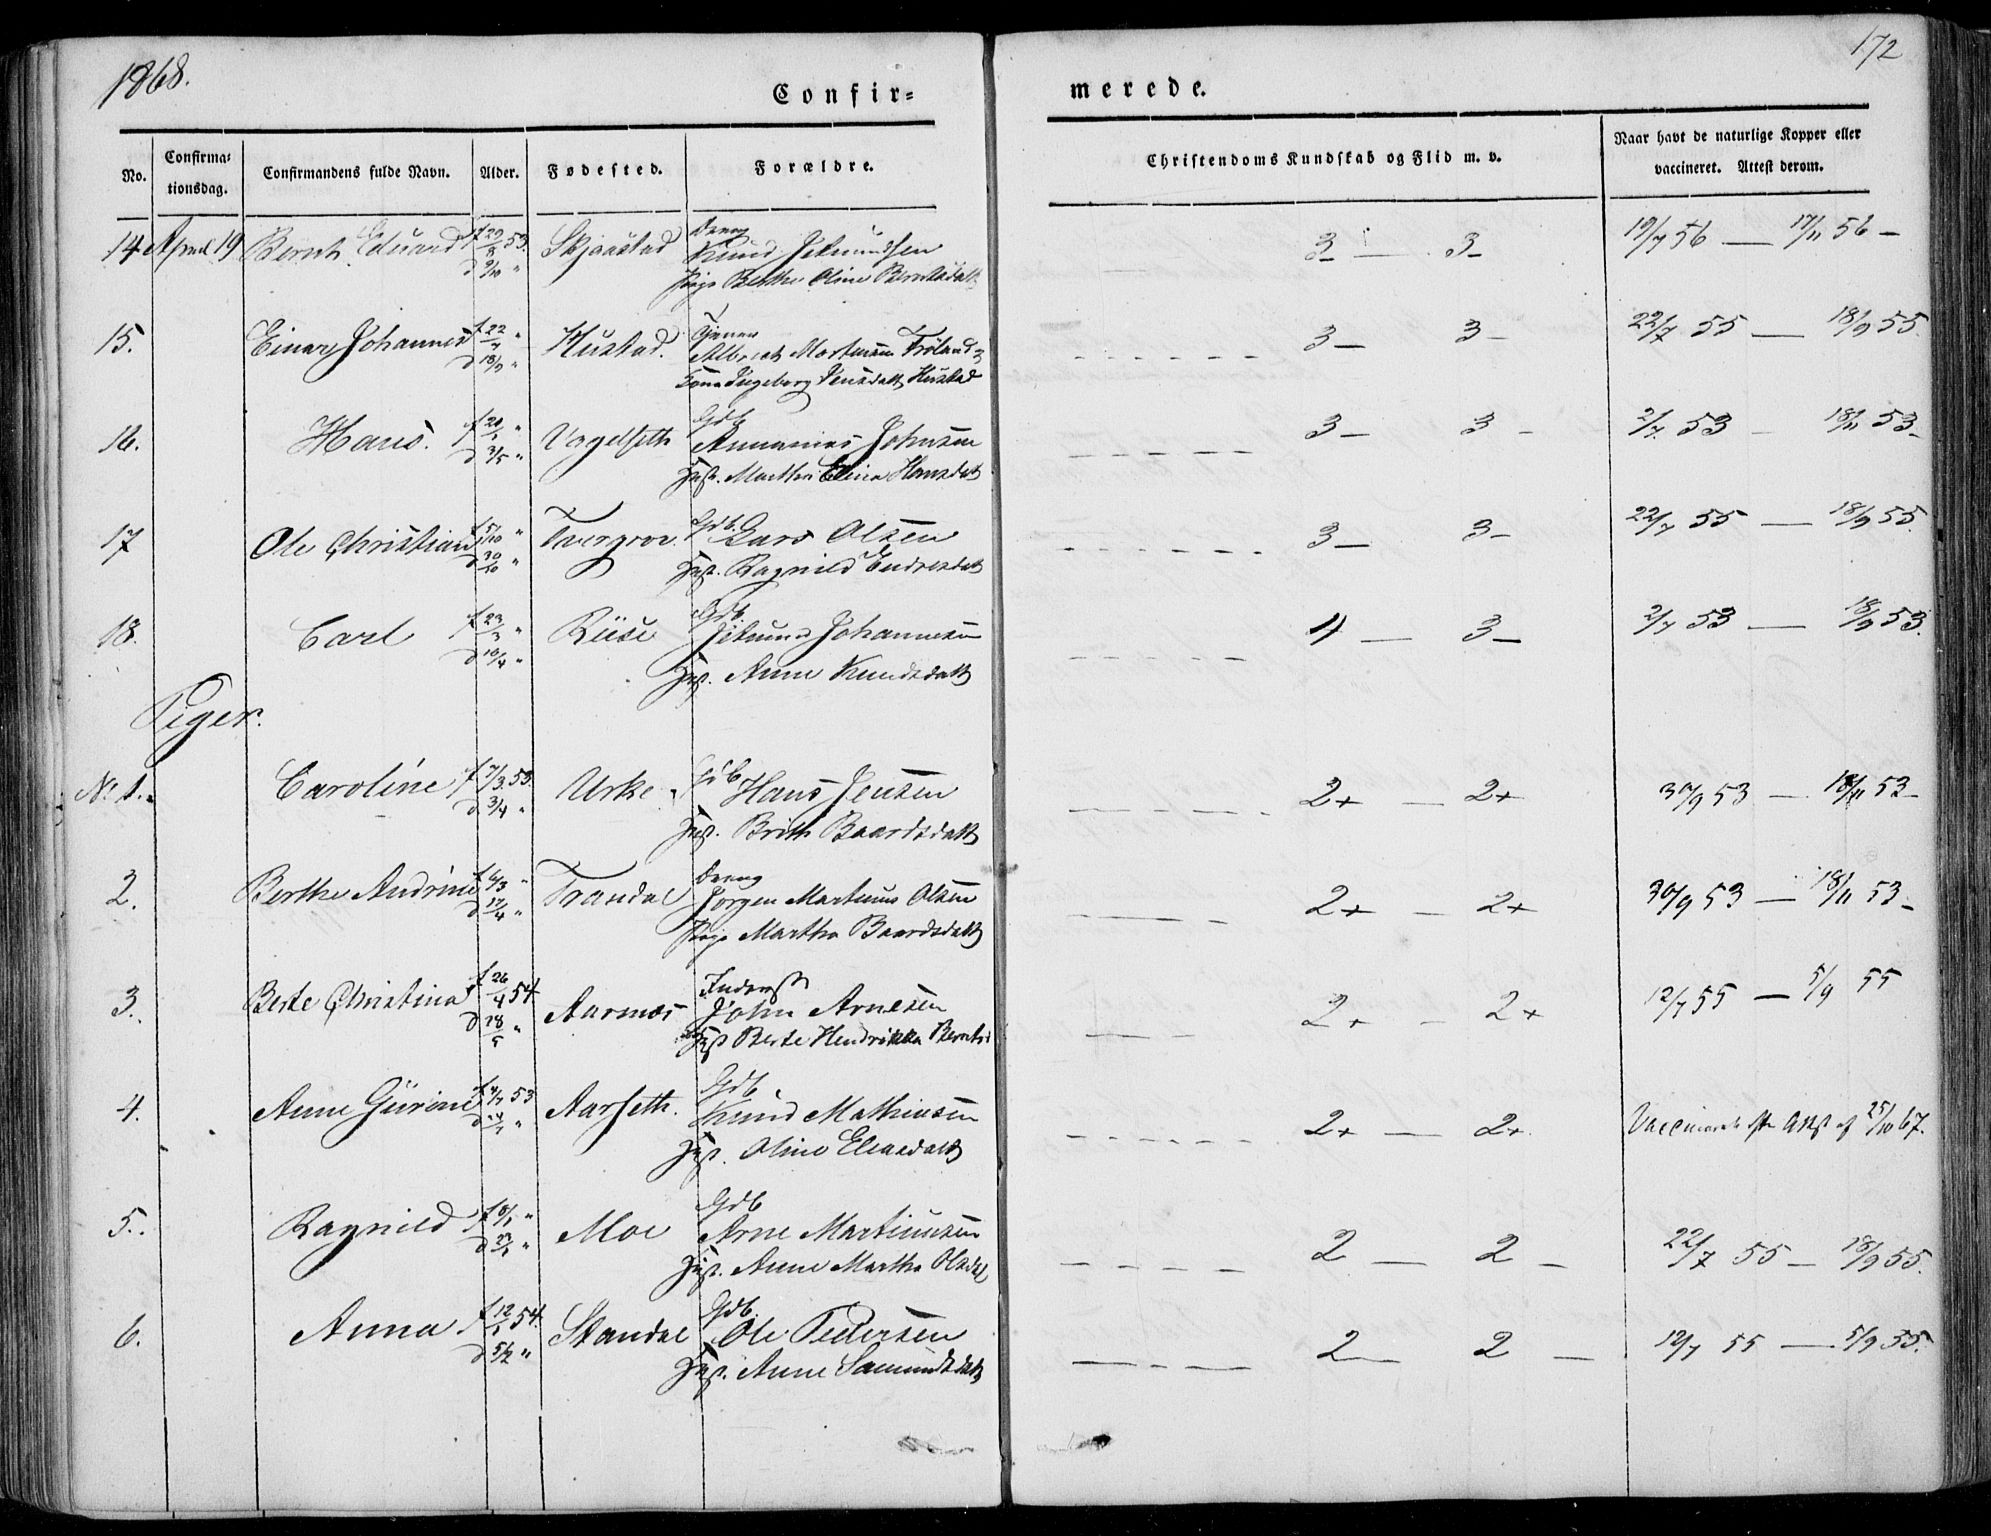 1868.
172
Confir=
merede.
No.
Confirma=
tionsdag.
Confirmandens fulde Navn.
Alder.
Fødested.
Forældre.
Christendoms Kundskab og Flid m. v.
Naar havt de naturlige Kopper eller
vaccineret. Attest derom.
14 April 19 Bernt Eduard f 29/8 53. Skjaastad Dreng 3 — 3 — 19/7 56 — 17/11 56 —
d 9/10 " Knud
Pige Berthe Oline Berntsdatt
15. Einar Johannes f 22/7 " Hustad. 3 — 3 — 22/7 55 — 18/9 55.
d 18/9 " Albrich Martinsen
Ingeborg Jensdatt Hustad
16. Hans. f 20/1 " Gdb 3 — 3 — 2/7 53 — 18/11 53 —
d 3/5 " Annanias Johnsen
Hust. Marthe Elina Hansdatt
17 Ole Christian f 5/10 " Tvergrov. Gdb. Lars Olsen 3 — 3 — 22/7 55 — 18/9 55.
d 30/10 " Hust. Ragnild Endresdatt
18. Carl f 23/3 " Riise Gdb. 4 — 3 — 2/7 53 — 18/9 53.
d 10/4 " Johannesen
Hust. Anne Knudsdatt
Piger.
No 1. Caroline f 7/3 53. Urke Gdb Hans Jensen 2+ — 2+ 30/9 53 — 18/11 53 —
d 3/4 " Hust. Brith Baardsdatt
2. Berthe Andrine f 6/3 " Trandal Dreng 2+ — 2+ 30/9 53 — 18/11 53 —
d 17/4 " Jørgen Martinus Olsen
Pige Martha Baardsdatt
3. Berte Christina f 26/4 54 Aarnæs Inderst 2+ — 2+ 12/7 55 — 5/9 55
d 28/5 " John Arnesen
Hust Berte Hendrikka Berntsd
4. Anne Gurine 53 Aarseth. Gdb. 2+ — 2+ Vaccineret efter Attst af 25/10 67.
Knud Mathiasen
Hust. Oline Eliasdatt
5. Ragnild f 8/1 " Moe Gdb 2 — 2 — 22/7 55 — 18/9 55.
d 23/1 " Arne Martinussen
Hust. Anne Martha Olsdat
6. Anna f 12/1 54. Standal Gdb. 2 — 2 — 12/7 55 — 5/9 55.
d 5/2 " Ole Pedersen
Hust. Anne Samundsdatt